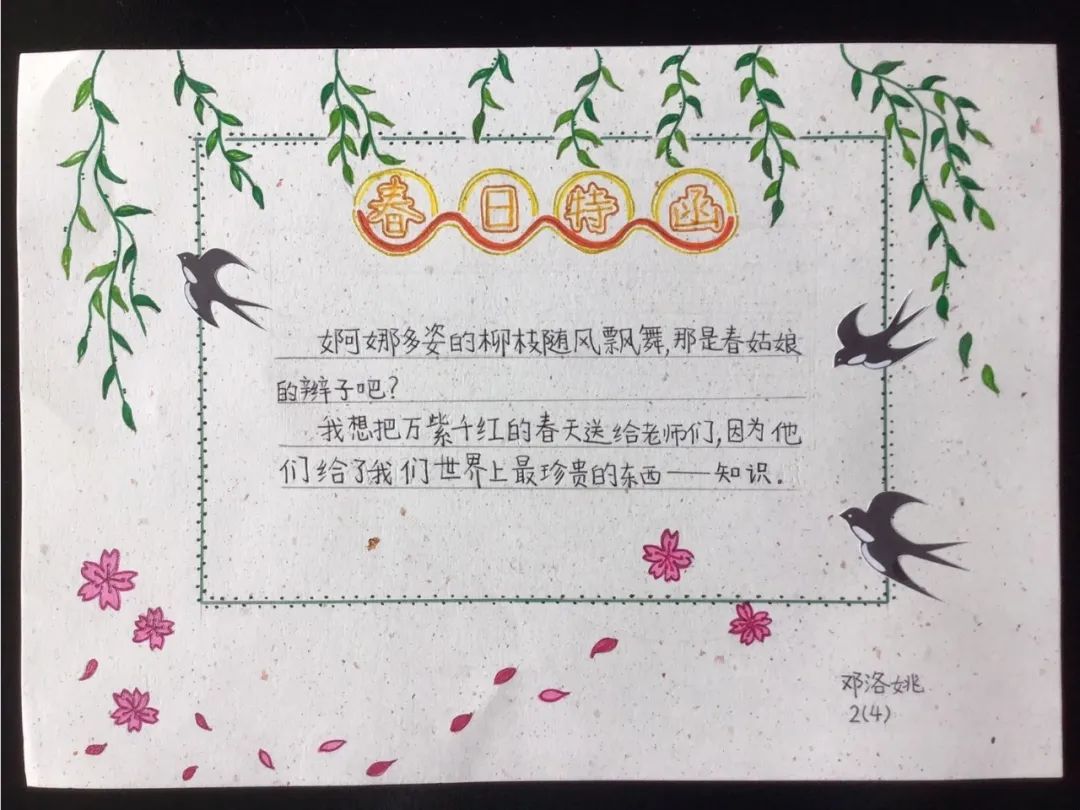 春日特函
婀娜多姿的柳枝随风飘舞,那是春姑娘
的辫子吧?
我想把万紫千红的春天送给老师们,因为他
们给了我们世界上最珍贵的东西——知识.
邓洛姚
2(4)